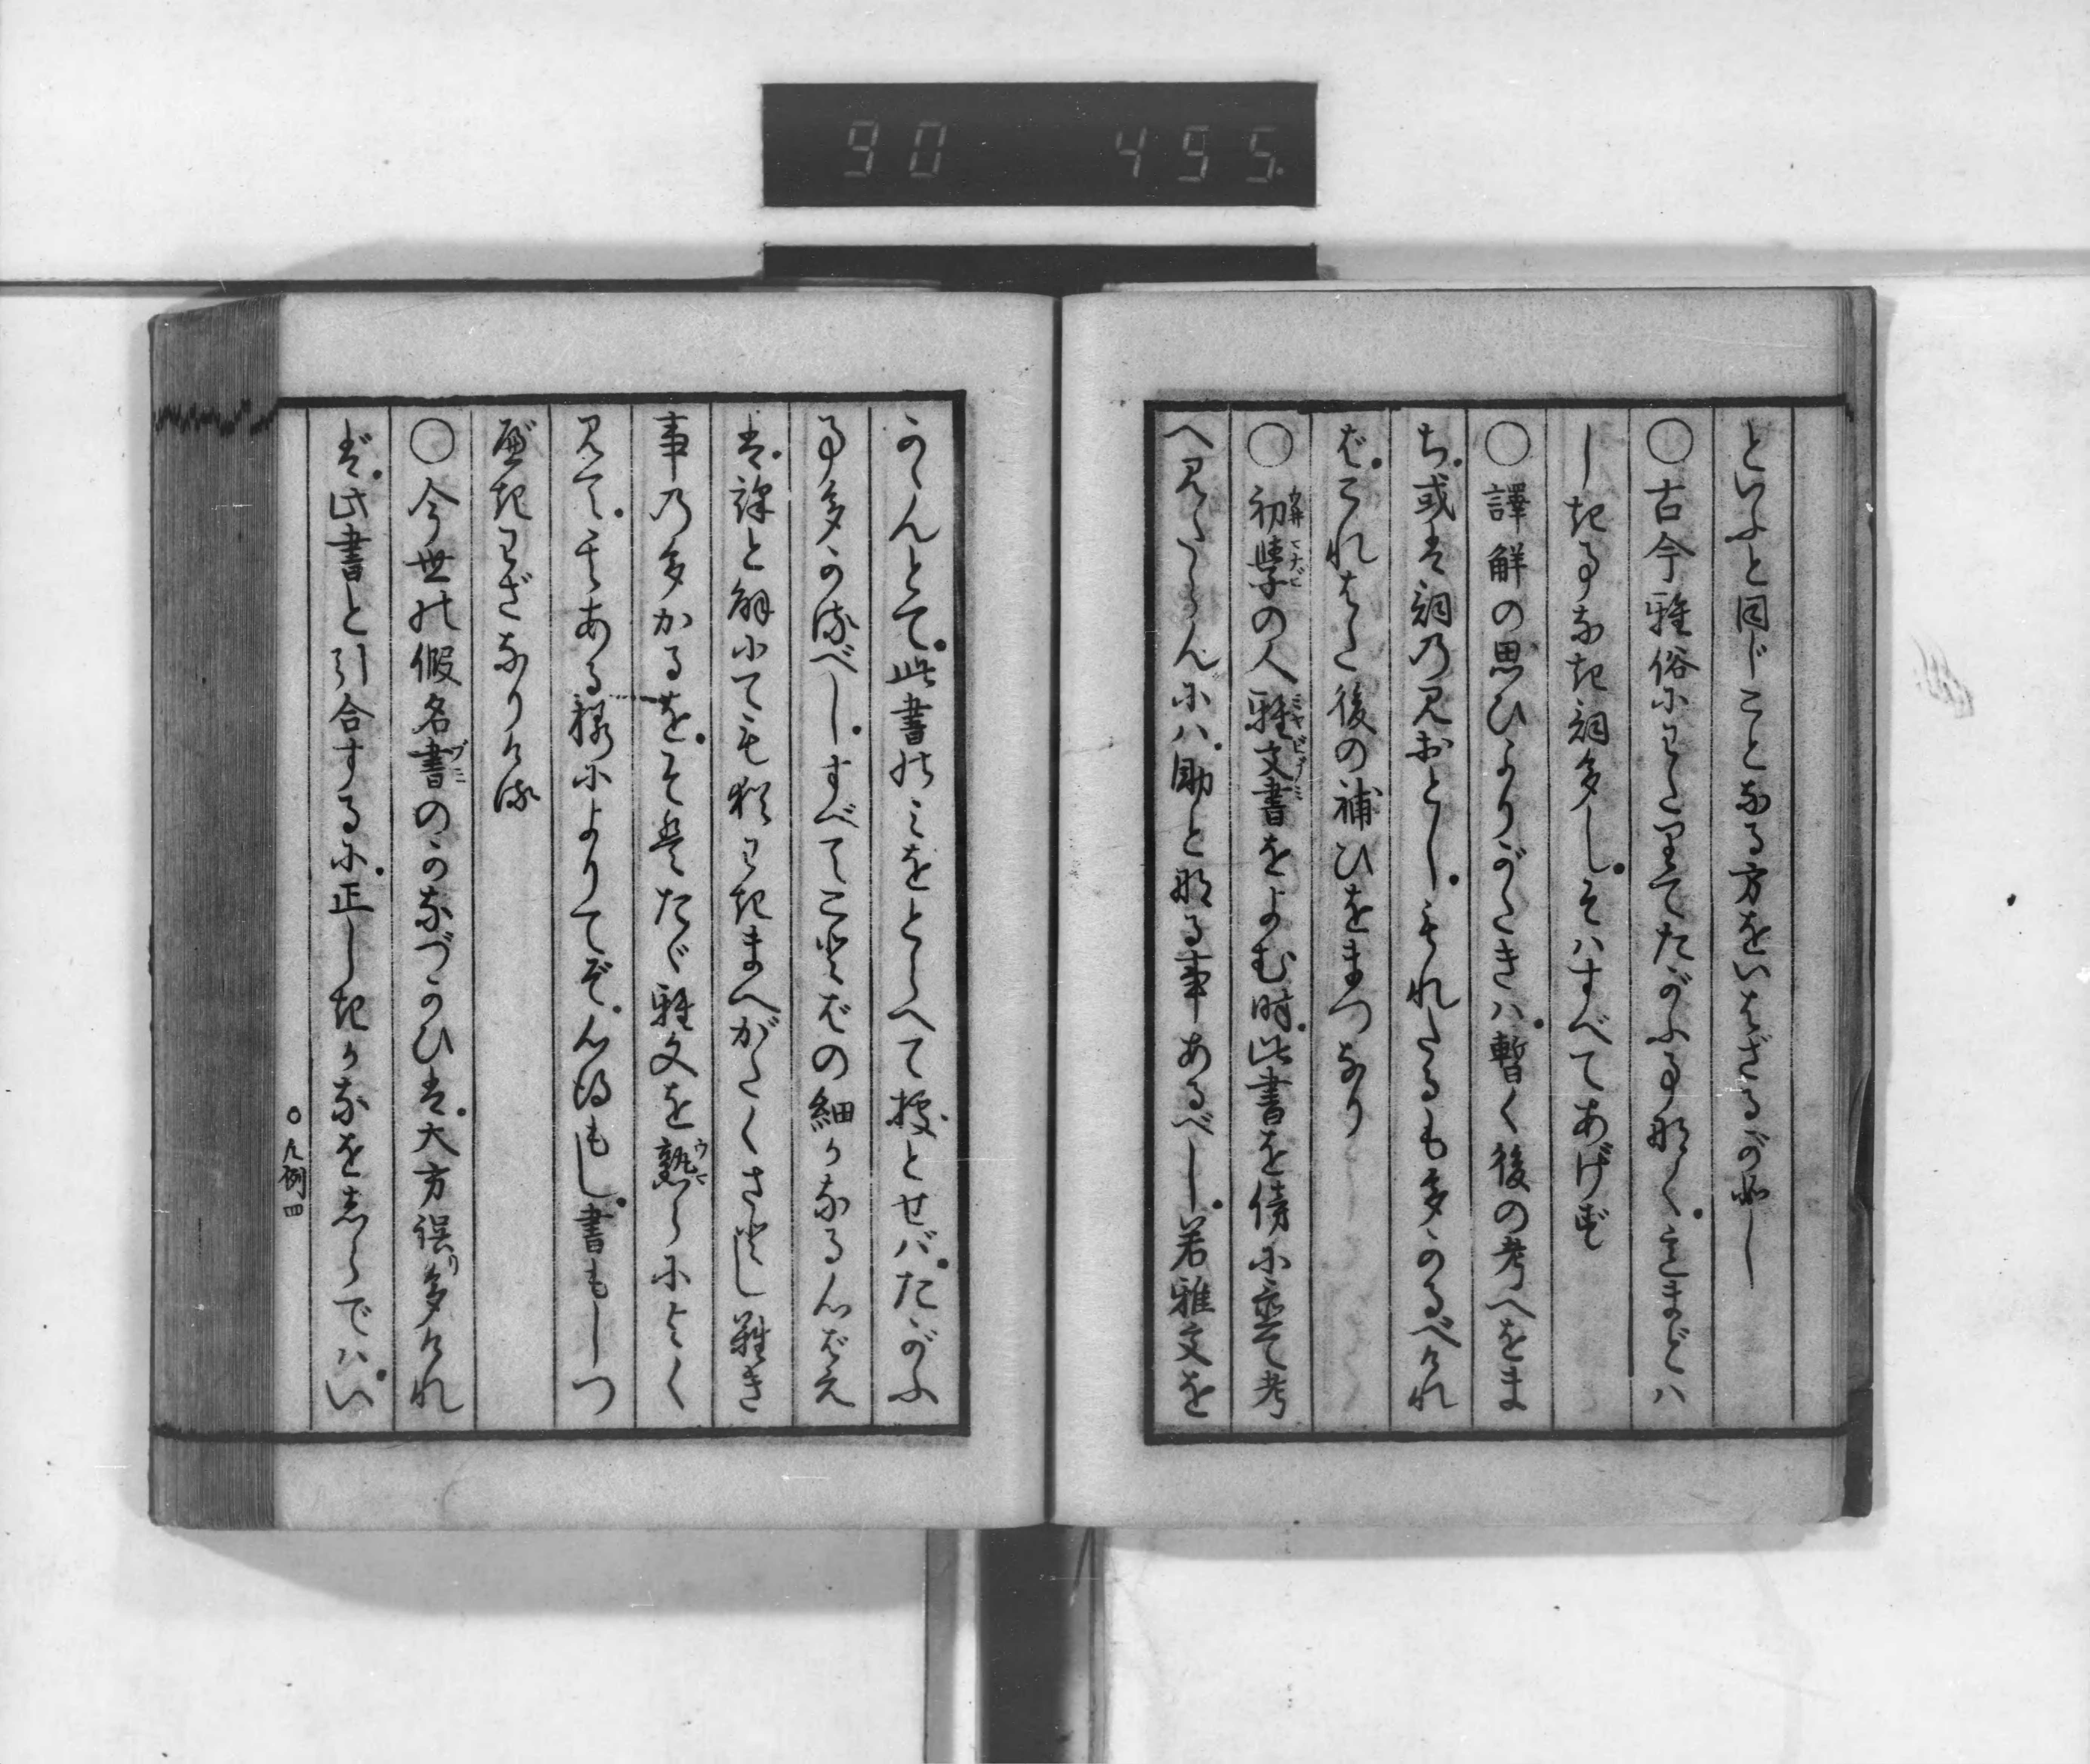 90 495
といふと同じことなる方をいはざるが如し
〇古今雅俗にわたりてたがふ事なく まどハ
しき事なき詞多し そハすべてあげず
〇譯解の思ひよりがたきハ 暫く後の考へをま
ち 或は詞の見おとし もれたるも多かるべけれ
ば これはた後の補ひをまつなり
〇初學の人 雅文書をよむ時 此書を傍に置て考
ウヒマナビ
ミヤビブミ
へ見たらんにハ 助となる事あるべし 若雅文を
かゝんとて 此書のみをとらへて 據とせバ たがふ
事多かるべし すべてことばの細かなる心ばえ
は 譯と解にても 猶わきまへがたくさとし難き
事の多かるを そはたゞ雅文を熟らによく
ウマ
見て そのある樣によりてぞ 心得もし 書もしつ
べきわざなりける
〇今世の假名書のかなづかひは 大方誤り多けれ
ブミ
ば 此書と引合するに 正しきかなをしらでハ い
〇凡例四